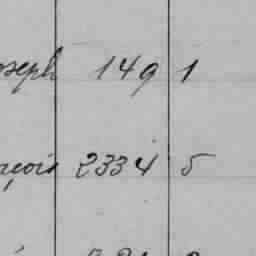 oseph 149 1
çois 2334 5